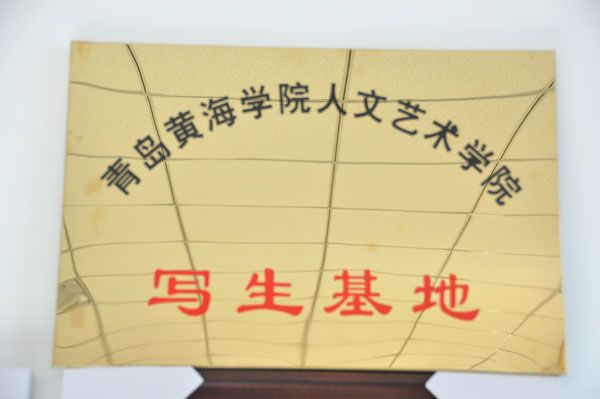 青岛黄海学院人文艺术学院
写生基地